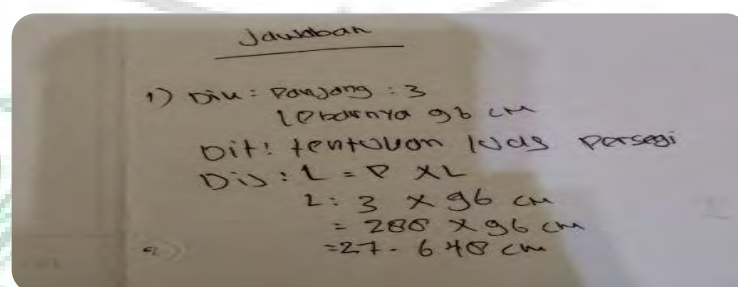 Jawaban
1) Dik = Panjang : 3
Lebarnya 96 cm
Dit : tentukan luas Persegi
Dij : L = P x L
L : 3 x 96 cm
= 288 x 96 cm
= 27. 648 cm
2)